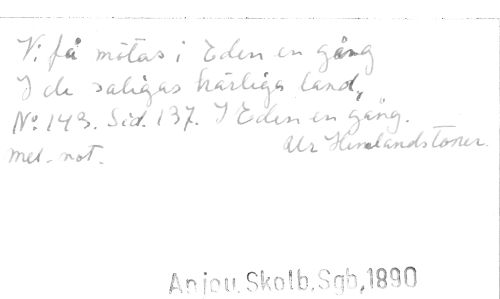 Vi få mötas i Eden en gång
I de saligas härliga land,
No 143. Sid. 137. I Eden en gång.
Ur Hemlandstoner.
mel. not.
Anjou, Skolb. Sgb, 1890